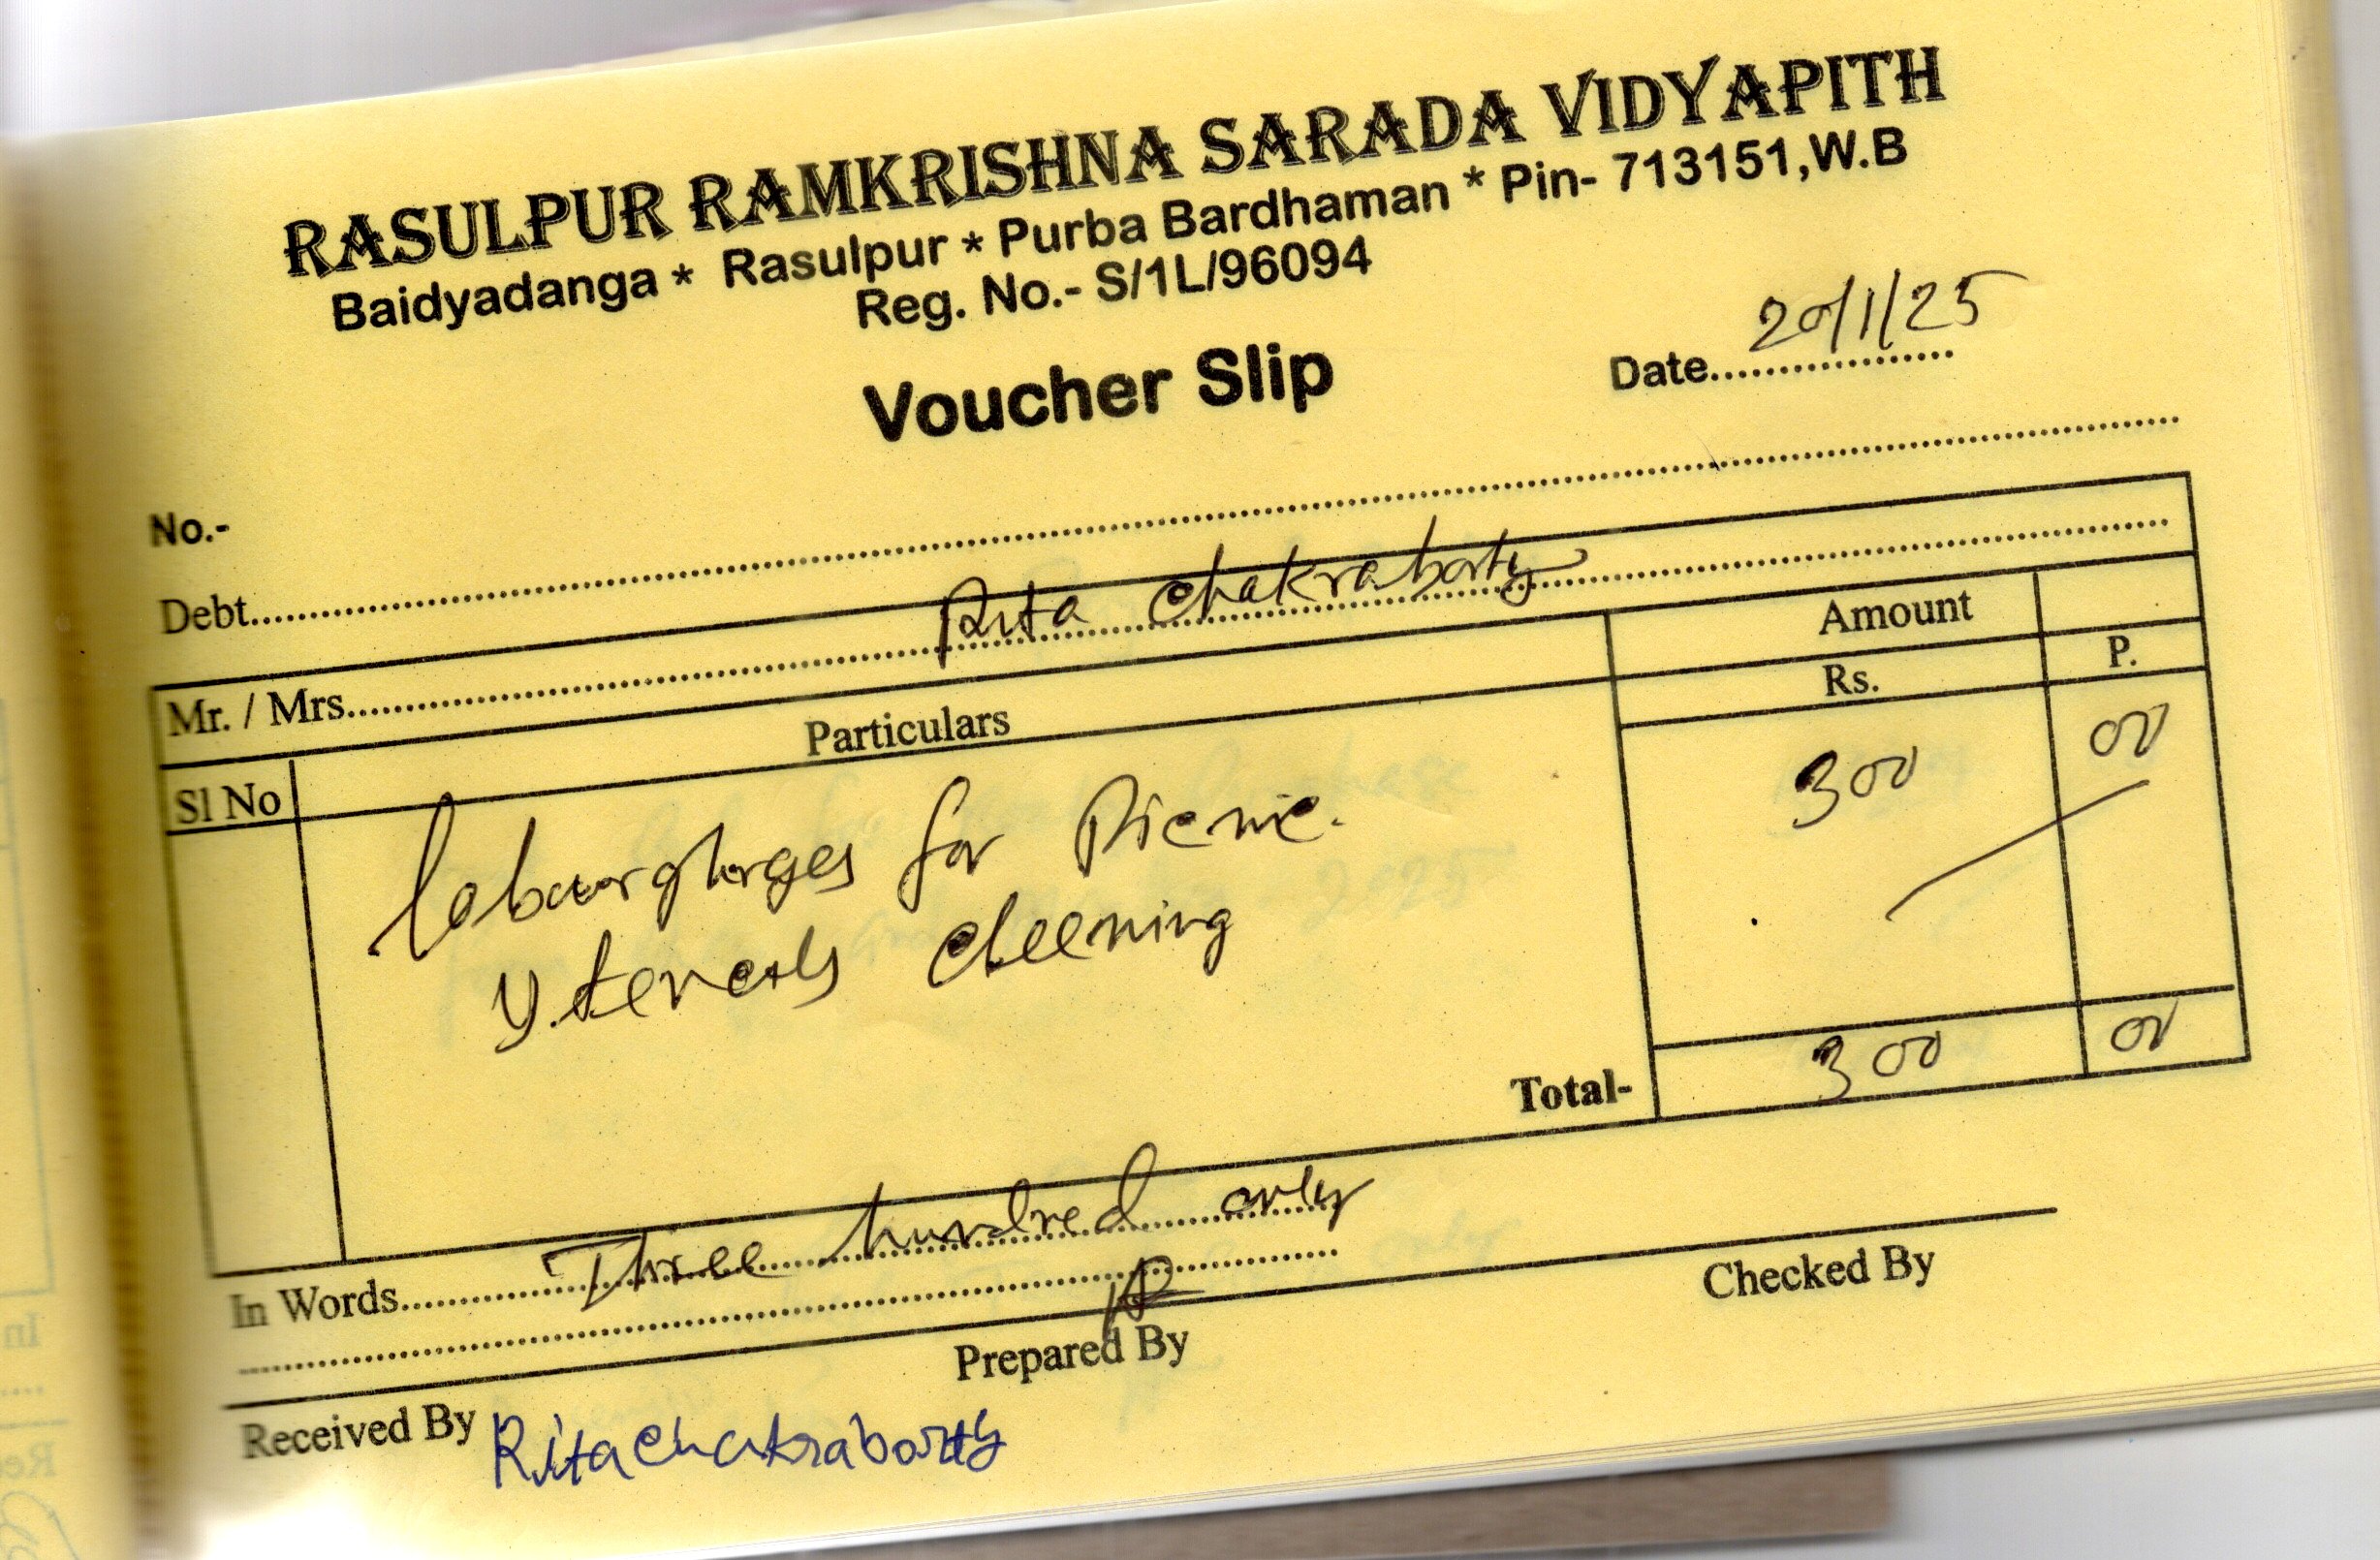 RASULPUR RAMKRISHNA SARADA VIDYAPITH
Baidyadanga * Rasulpur * Purba Bardhaman * Pin- 713151,W.B
Reg. No.- S/1L/96094
Voucher Slip
Date 20/1/25
No.-
Debt
Mr. / Mrs. Rita Chakraborty
Sl No Particulars Amount
Rs. P.
labour charges for Picnic. 300 00
cleening
Total- 300 00
In Words Three hundred only
Prepared By
Checked By
Received By Rita Chakraborty